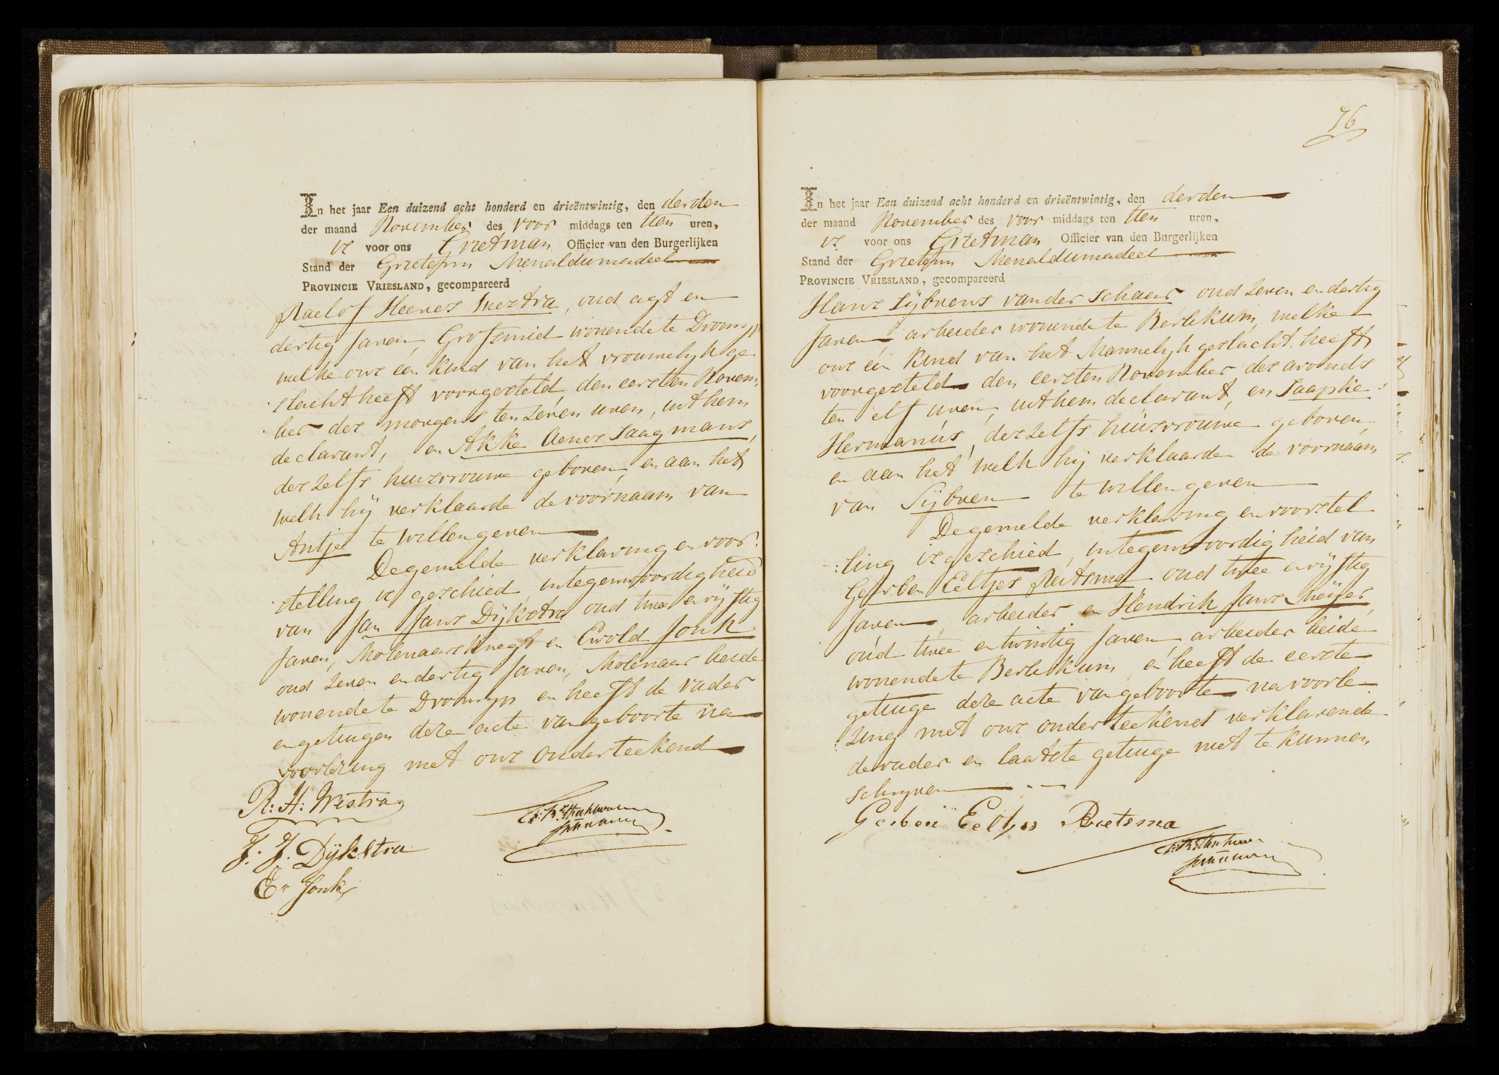 In het jaar Een duizend acht honderd en drieëntwintig, den derden
der maand November des voor middags ten tien uren,
is voor ons Grietman Officier van den Burgerlijken
Stand der Grietenij Menaldumadeel
PROVINCIE VRIESLAND, gecompareerd
Raelof Heeres Westra, oud agt en
dertig Jaren Grofsmid wonende te Dronrijp
welke ons een kind van het vrouwelijk ge-
slacht heeft voorgesteld den eersten Novem-
ber des morgens ten zeven uren, uit hem
declarant, en Akke Aenes Saagmans,
deszelfs huisvrouwe geboren, en aan het
welk hij verklaarde de voornaam van
Antje te willen geven
De gemelde verklaring en voor
stelling is geschied, in tegenwoordigheid
van Jan Jans Dijkstra oud twee en vijftig
Jaren, Molenaarsknegt en Ewold Jonk
oud zeven en dertig Jaren, Molenaar beide
wonende te Dronrijp en heeft de vader
en getuigen deze acte van geboorte na
voorlezing met ons onderteekend
R: H: Westra
J. J. Dijkstra
E. Jonk
76
In het jaar Een duizend acht honderd en drieëntwintig, den derden
der maand November des voor middags ten tien uren,
is voor ons Grietman Officier van den Burgerlijken
Stand der Grietenij Menaldumadeel
PROVINCIE VRIESLAND, gecompareerd
Hans Sijbrens van der Schaar oud zeven en dertig
Jaren arbeider wonende te Berlekum, welke
ons één kind van het Mannelijk geslacht heeft
voorgesteld den eersten November des avonds
ten elf uren, uit hem declarant, en Saapke
Hermanus, deszelfs huisvrouwe geboren
en aan het welk hij verklaarde de voornaam
van Sijbren te willen geven
De gemelde verklaring en voorstel
:ling is geschied, in tegenwoordigheid van
Gerben Eeltjes Reitsma oud twee en vijftig
Jaren, arbeider en Hendrik Jans Meijer,
oud twee en twintig Jaren arbeider beide
wonende te Berlekum, en heeft de eerste
getuige deze acte van geboorte na voorle
zing met ons onderteekend verklarende
de vader en laatste getuige niet te kunnen
schrijven
Gerben Eeltjes Reetsma